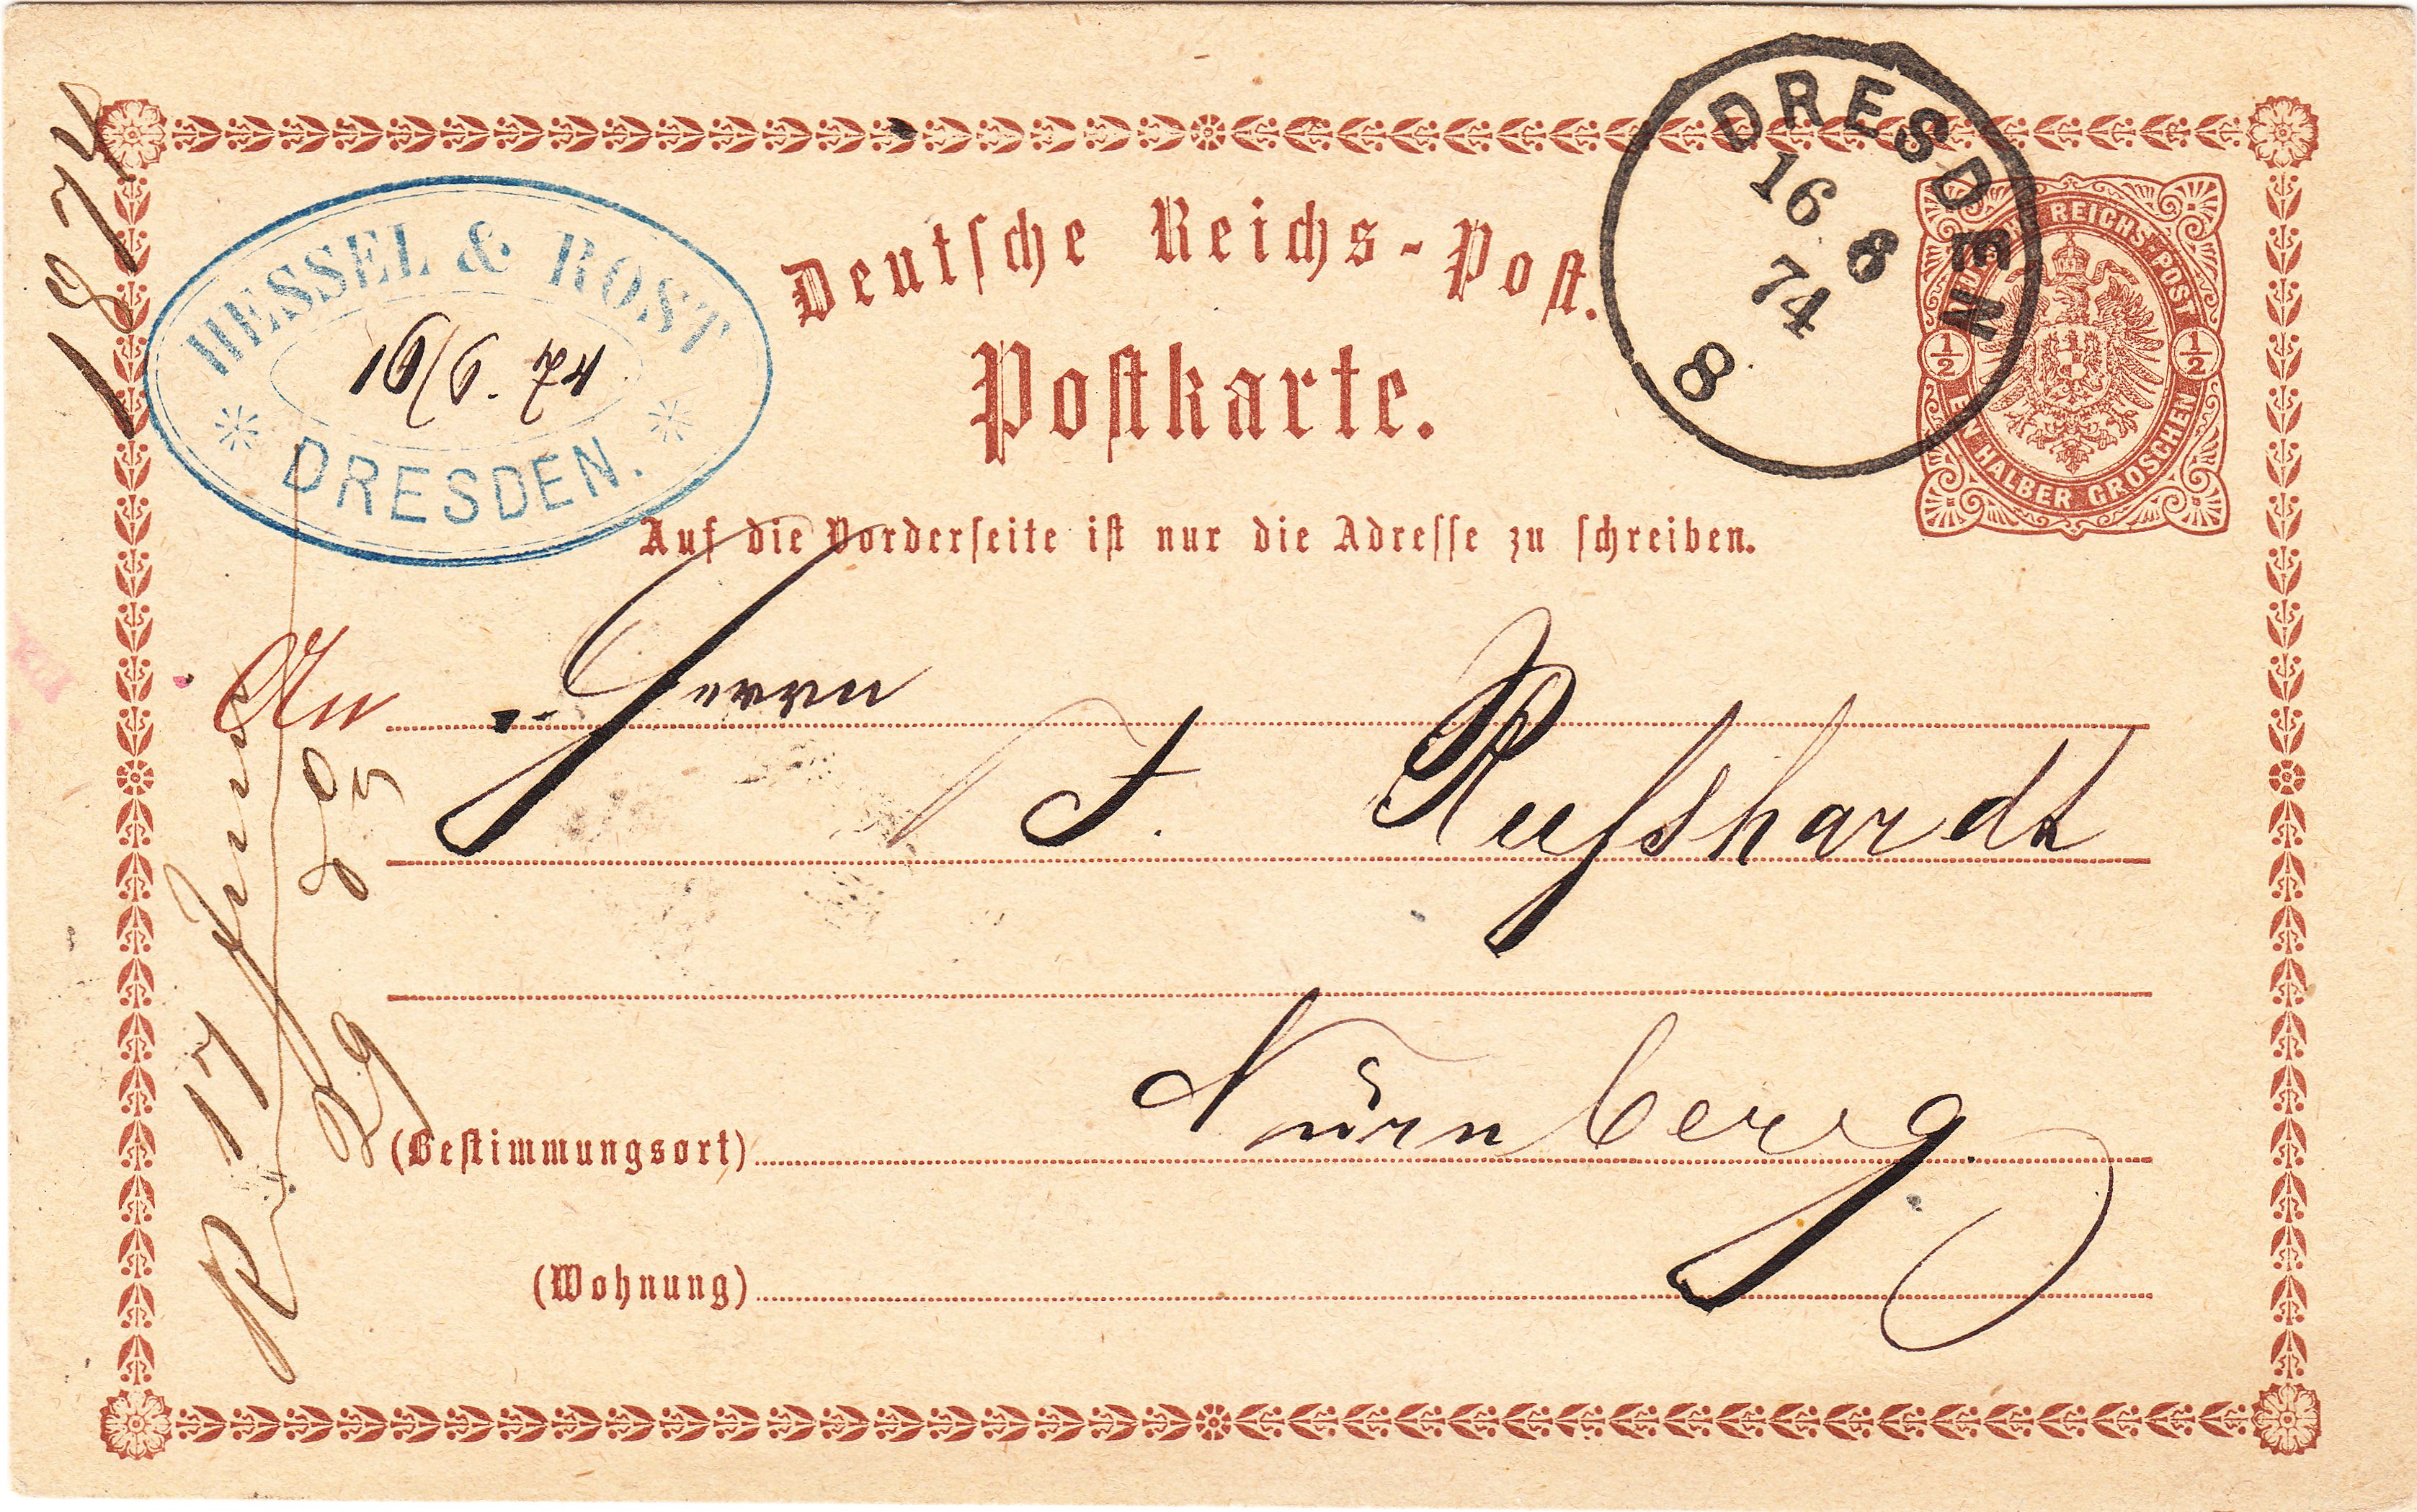 1874
WESSEL & ROST
16/6. 74
DRESDEN.
Deutsche Reichs-Post.
Postkarte.
DRESDEN
16 8
74
8
DEUTSCHE REICHS POST
1/2 1/2
EIN HALBER GROSCHEN
Auf die Vorderseite ist nur die Adresse zu schreiben.
An Herrn
J. Rußhardt
Nürnberg.
(Bestimmungsort)
(Wohnung)
17 Juni